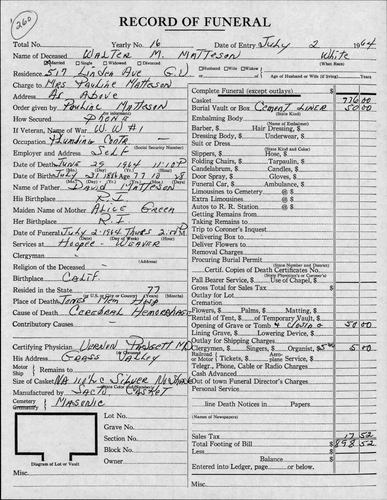 260
RECORD OF FUNERAL
Total No. Yearly No. 16 Date of Entry July 2 1964
Name of Deceased Walter M. Matteson White
Married Single Widowed Divorced Husband Wife Widow (What Race)
Residence 517 Linden Ave G.V. Age of Husband or Wife (if living) Years
Charge to Mrs Pauline Matteson
Address As Above
Order given by Pauline Matteson
How Secured Phone
If Veteran, Name of War W.W #1
Occupation Plumbing Contr
Employer and Address Self
Date of Death June 29 1964 11:10 P
Date of Birth July 21 1886 Age 77
Name of Father David Matteson
His Birthplace R I
Maiden Name of Mother Alice Green
Her Birthplace R. I.
Date of Funeral July 2 1964 Thurs 2:00 P
Services at Hooper - Weaver
Clergyman
Religion of the Deceased
Birthplace Calif
Resided in the State 77
Place of Death Jones Mem Hosp
Cause of Death Cerebral Hemorrhage
Contributory Causes
Certifying Physician Vernon Padgett MD
His Address Grass Valley
Motor Ship Remains to
Size of Casket
Manufactured by Sacto Casket
Cemetery Crematory Masonic
Lot No.
Grave No.
Section No.
Block No.
Owner
Diagram of Lot or Vault
Misc.
Complete Funeral (except outlays) $
Casket 776 00
Burial Vault or Box Cement Liner 50 00
(State Kind)
Embalming Body
(Name of Embalmer)
Barber, $ Hair Dressing, $
Dressing Body, $ Underwear, $
Suit or Dress
(State Kind and Color)
Slippers, $ Hose, $
Folding Chairs, $ Tarpaulin, $
Candelabrum, $ Candles, $
Door Spray, $ Gloves, $
Funeral Car, $ Ambulance, $
Limousines to Cemetery @ $
Extra Limousines @ $
Autos to R. R. Station @ $
Getting Remains from
Taking Remains to
Trip to Coroner's Inquest
Delivering Box to
Deliver Flowers to
Removal Charges
Procuring Burial Permit
(State Number and District)
Certif. Copies of Death Certificates No.
Pall Bearer Service, $ Use of Chapel, $
Gross Total for Sales Tax $
Outlay for Lot
Cremation
Flowers, $ Palms, $ Matting, $
Rental of Tent, $ of Temporary Vault, $
Opening of Grave or Tomb & Closing 50 00
Lining Grave, $ Lowering Device, $
Outlay for Shipping Charges
Clergymen, $ Singers, $ Organist, $ 5 00 5 00
Railroad or Motor Tickets, $ Aeroplane Service, $
Telegr., Phone, Cable or Radio Charges
Cash Advanced
Out of town Funeral Director's Charges
Personal Service
line Death Notices in Papers.
(Names of Newspapers)
Sales Tax 17 52
Total Footing of Bill $ 898 52
Less
Balance $
Entered into Ledger, page or below.
Misc.